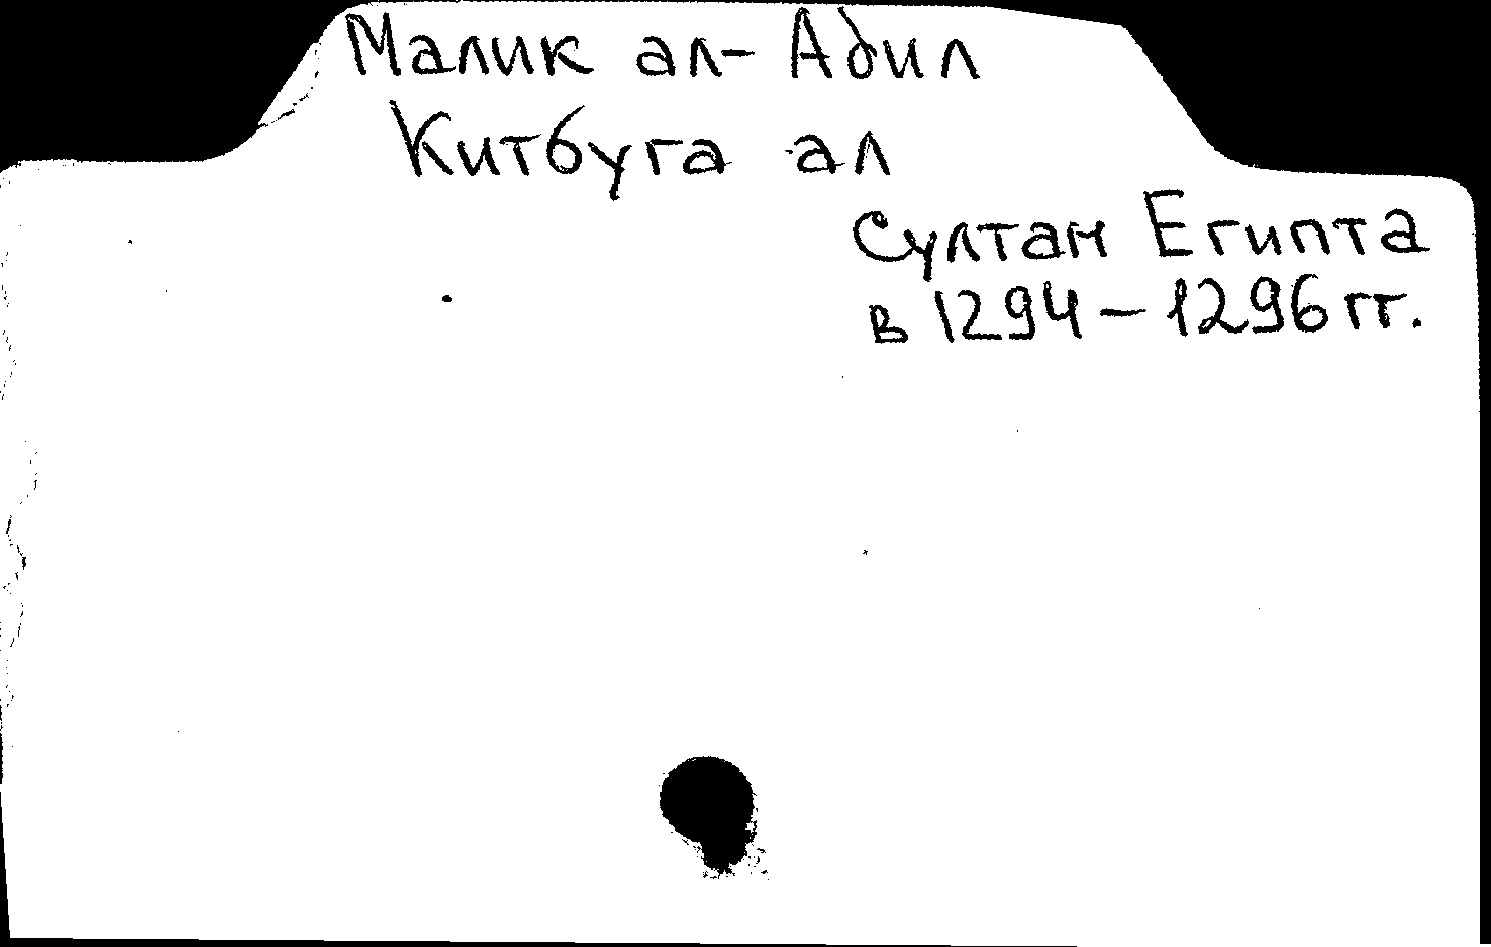 Малик ал-Адил
Китбуга ал
Султан Египта
в 1294-1296 гг.